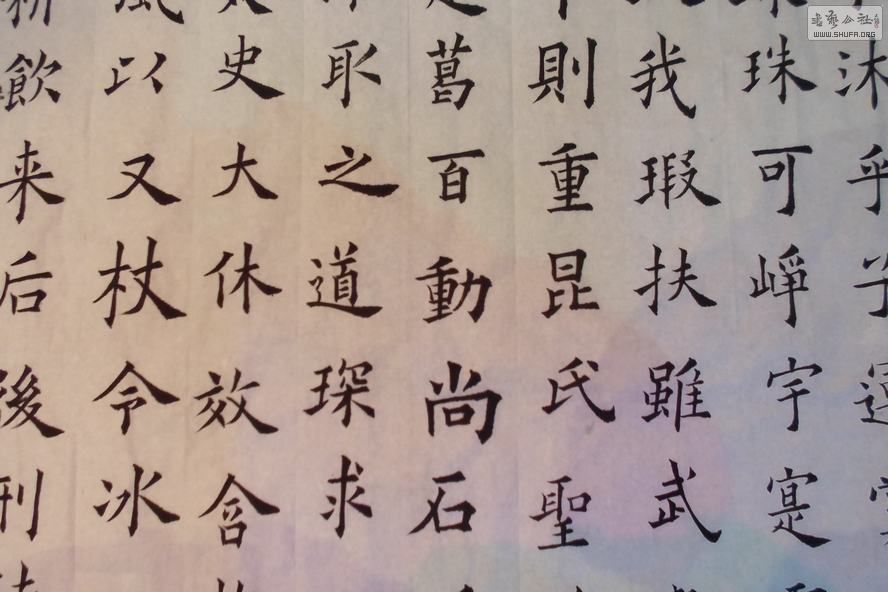 沐乎
珠可崢宇寔
我瑕扶雖武
則重昆氏聖
葛百動尚石
取之道琛求
史大休效含
以又杖令冰
飲来后後刑
書藝公社
WWW.SHUFA.ORG